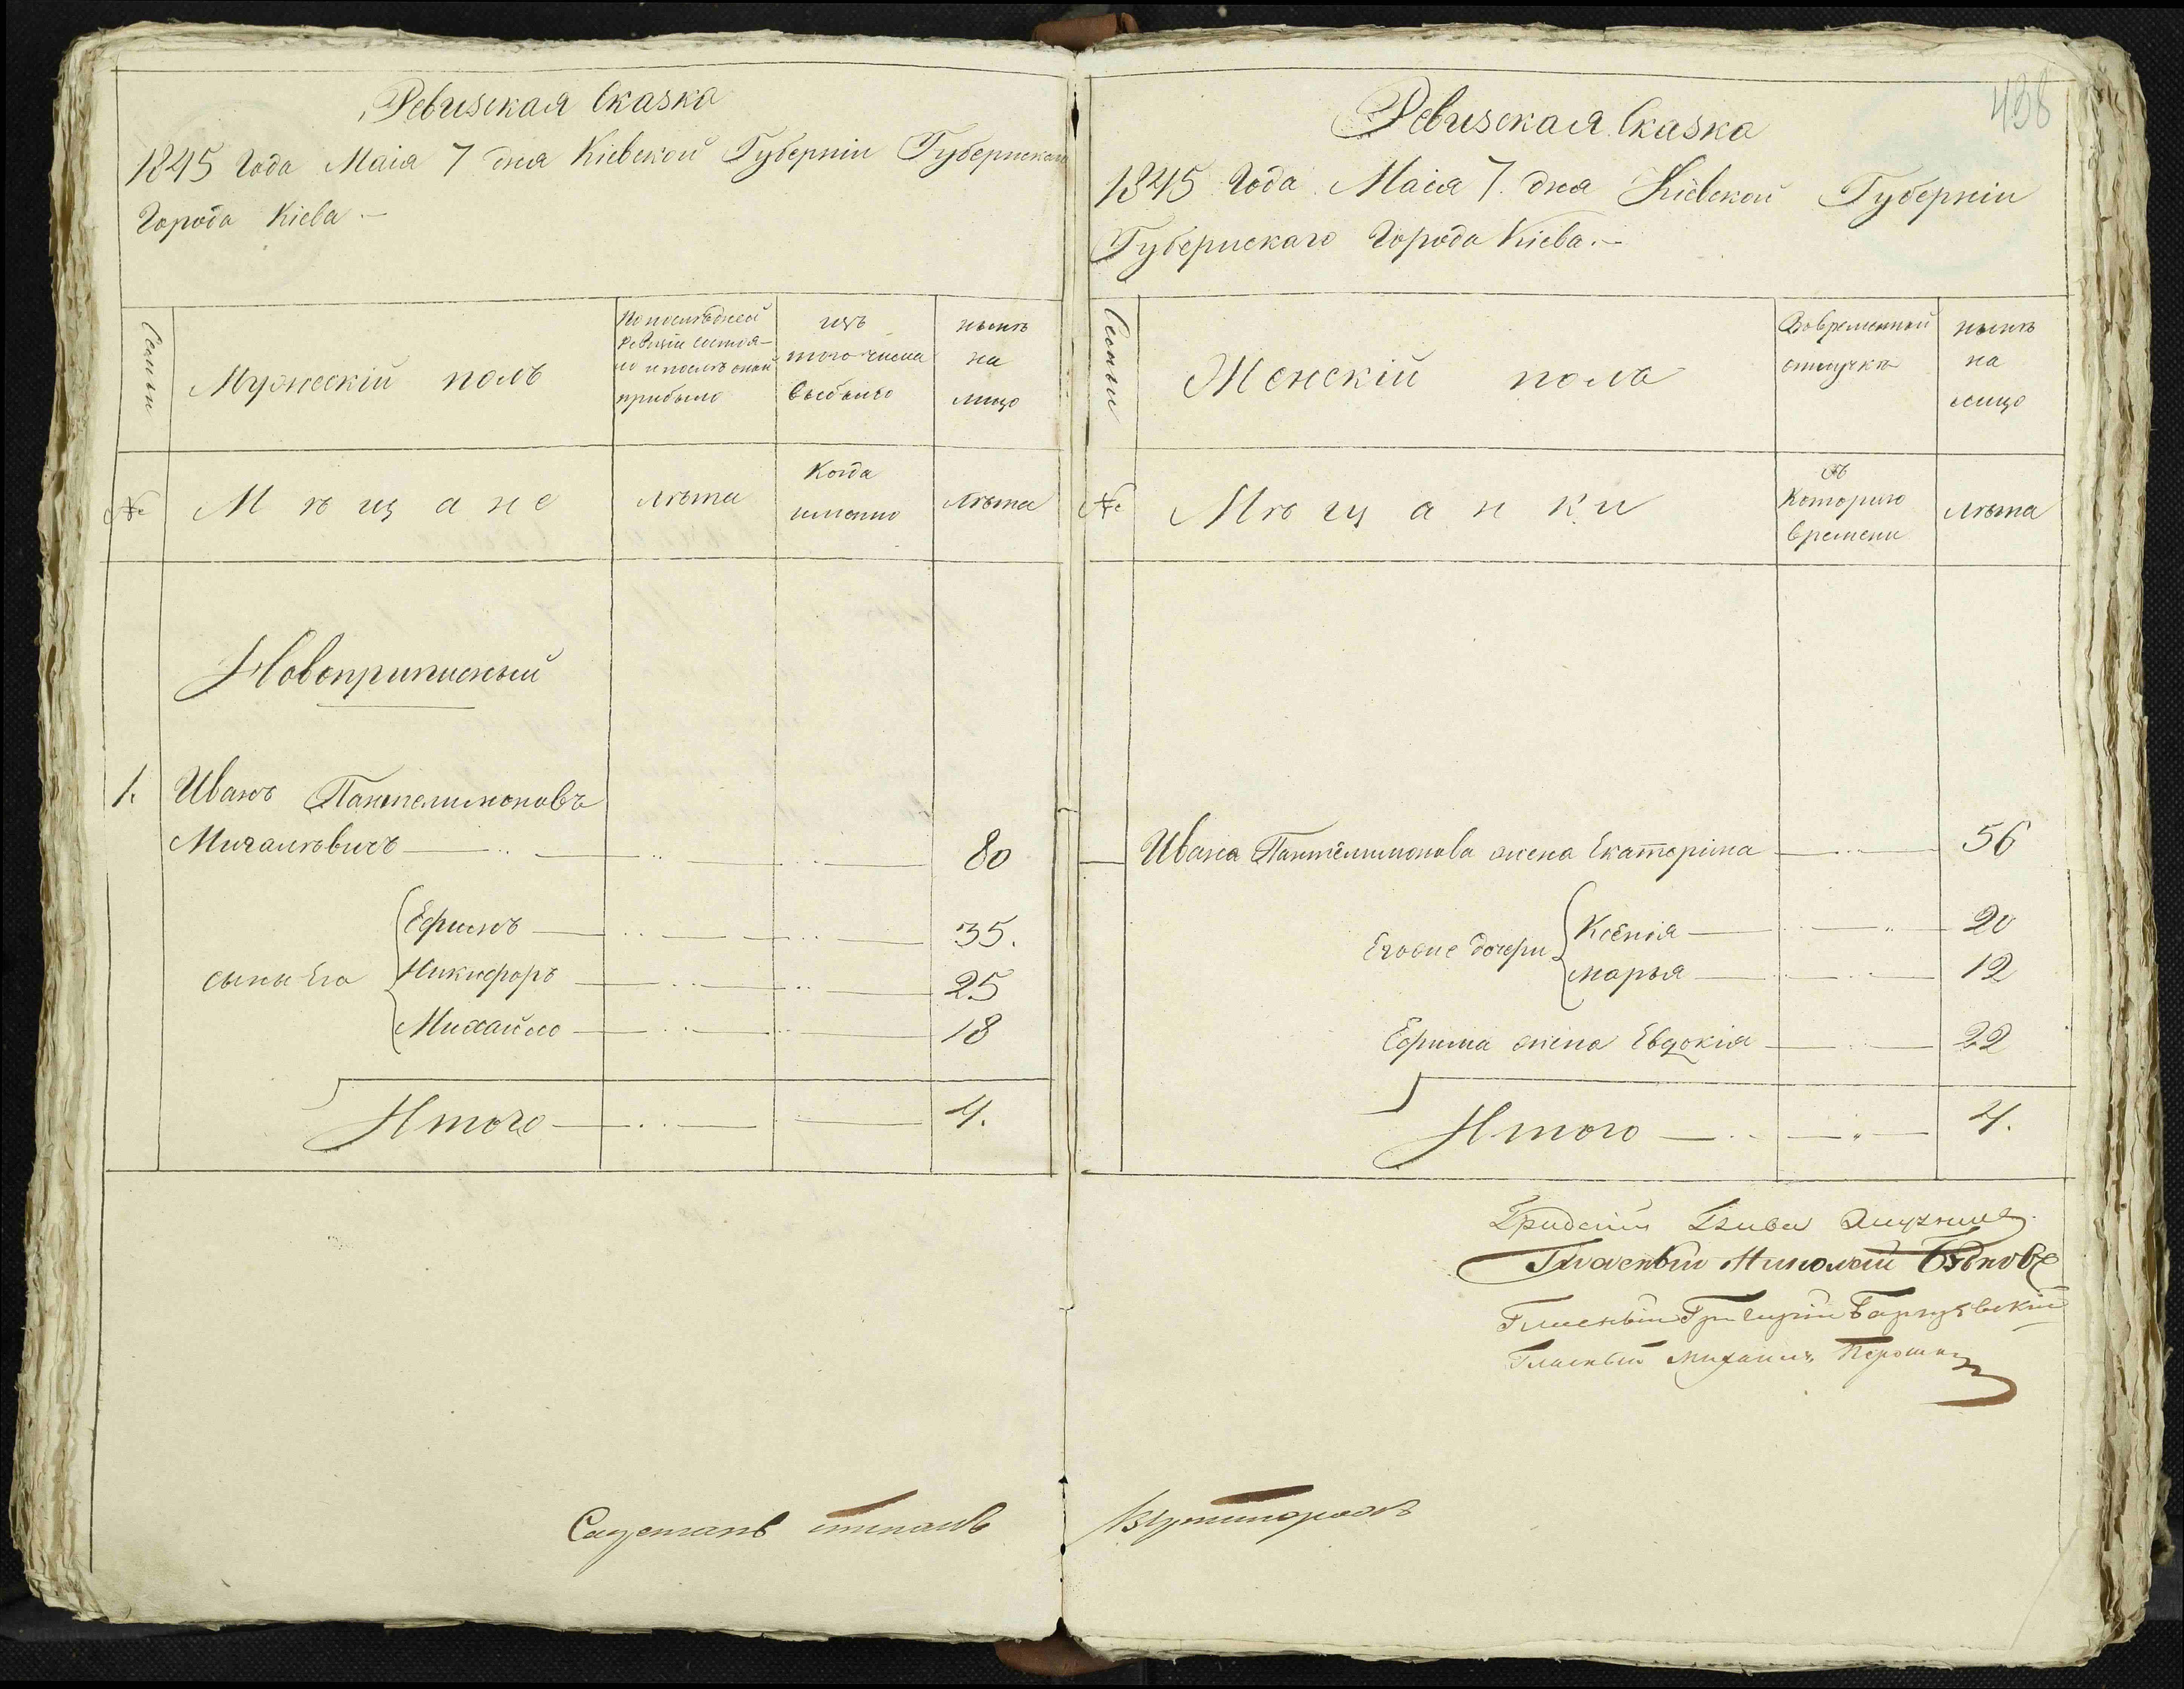 Ревизская Сказка
1845 Года Маія 7 дня Кіевской Губерніи Губернскаго
Города Кіева.—
Семьи
Мужескій полъ
По последней
Ревизіи состоя-
ло и после оной
прибыло
изъ
того числа
выбыло
ныне
на
лицо
№
Мѣщане
лѣта
Когда
именно
лѣта
Новоприписный
1. Иванъ Пантелимоновъ
Михалѣвичъ 80
сыны Его
Ефимъ 35.
Никифоръ 25
Михайло 18
Итого 4.
438
Ревизская Сказка
1845 Года Маія 7. дня Кіевской Губерніи
Губернскаго Города Кіева.—
Семьи
Женскій пола
Вовременной
отлучке
ныне
на
лицо
№
Мѣщанки
съ
Котораго
времени
лѣта
Ивана Пантелимонова жена Екатеріна 56
Еговые дочери
Ксенія 20
Марья 12
Ефима жена Евдокія 22
Итого 4.
Гласный Николай
Гласный Григорій
Гласный Михаилъ